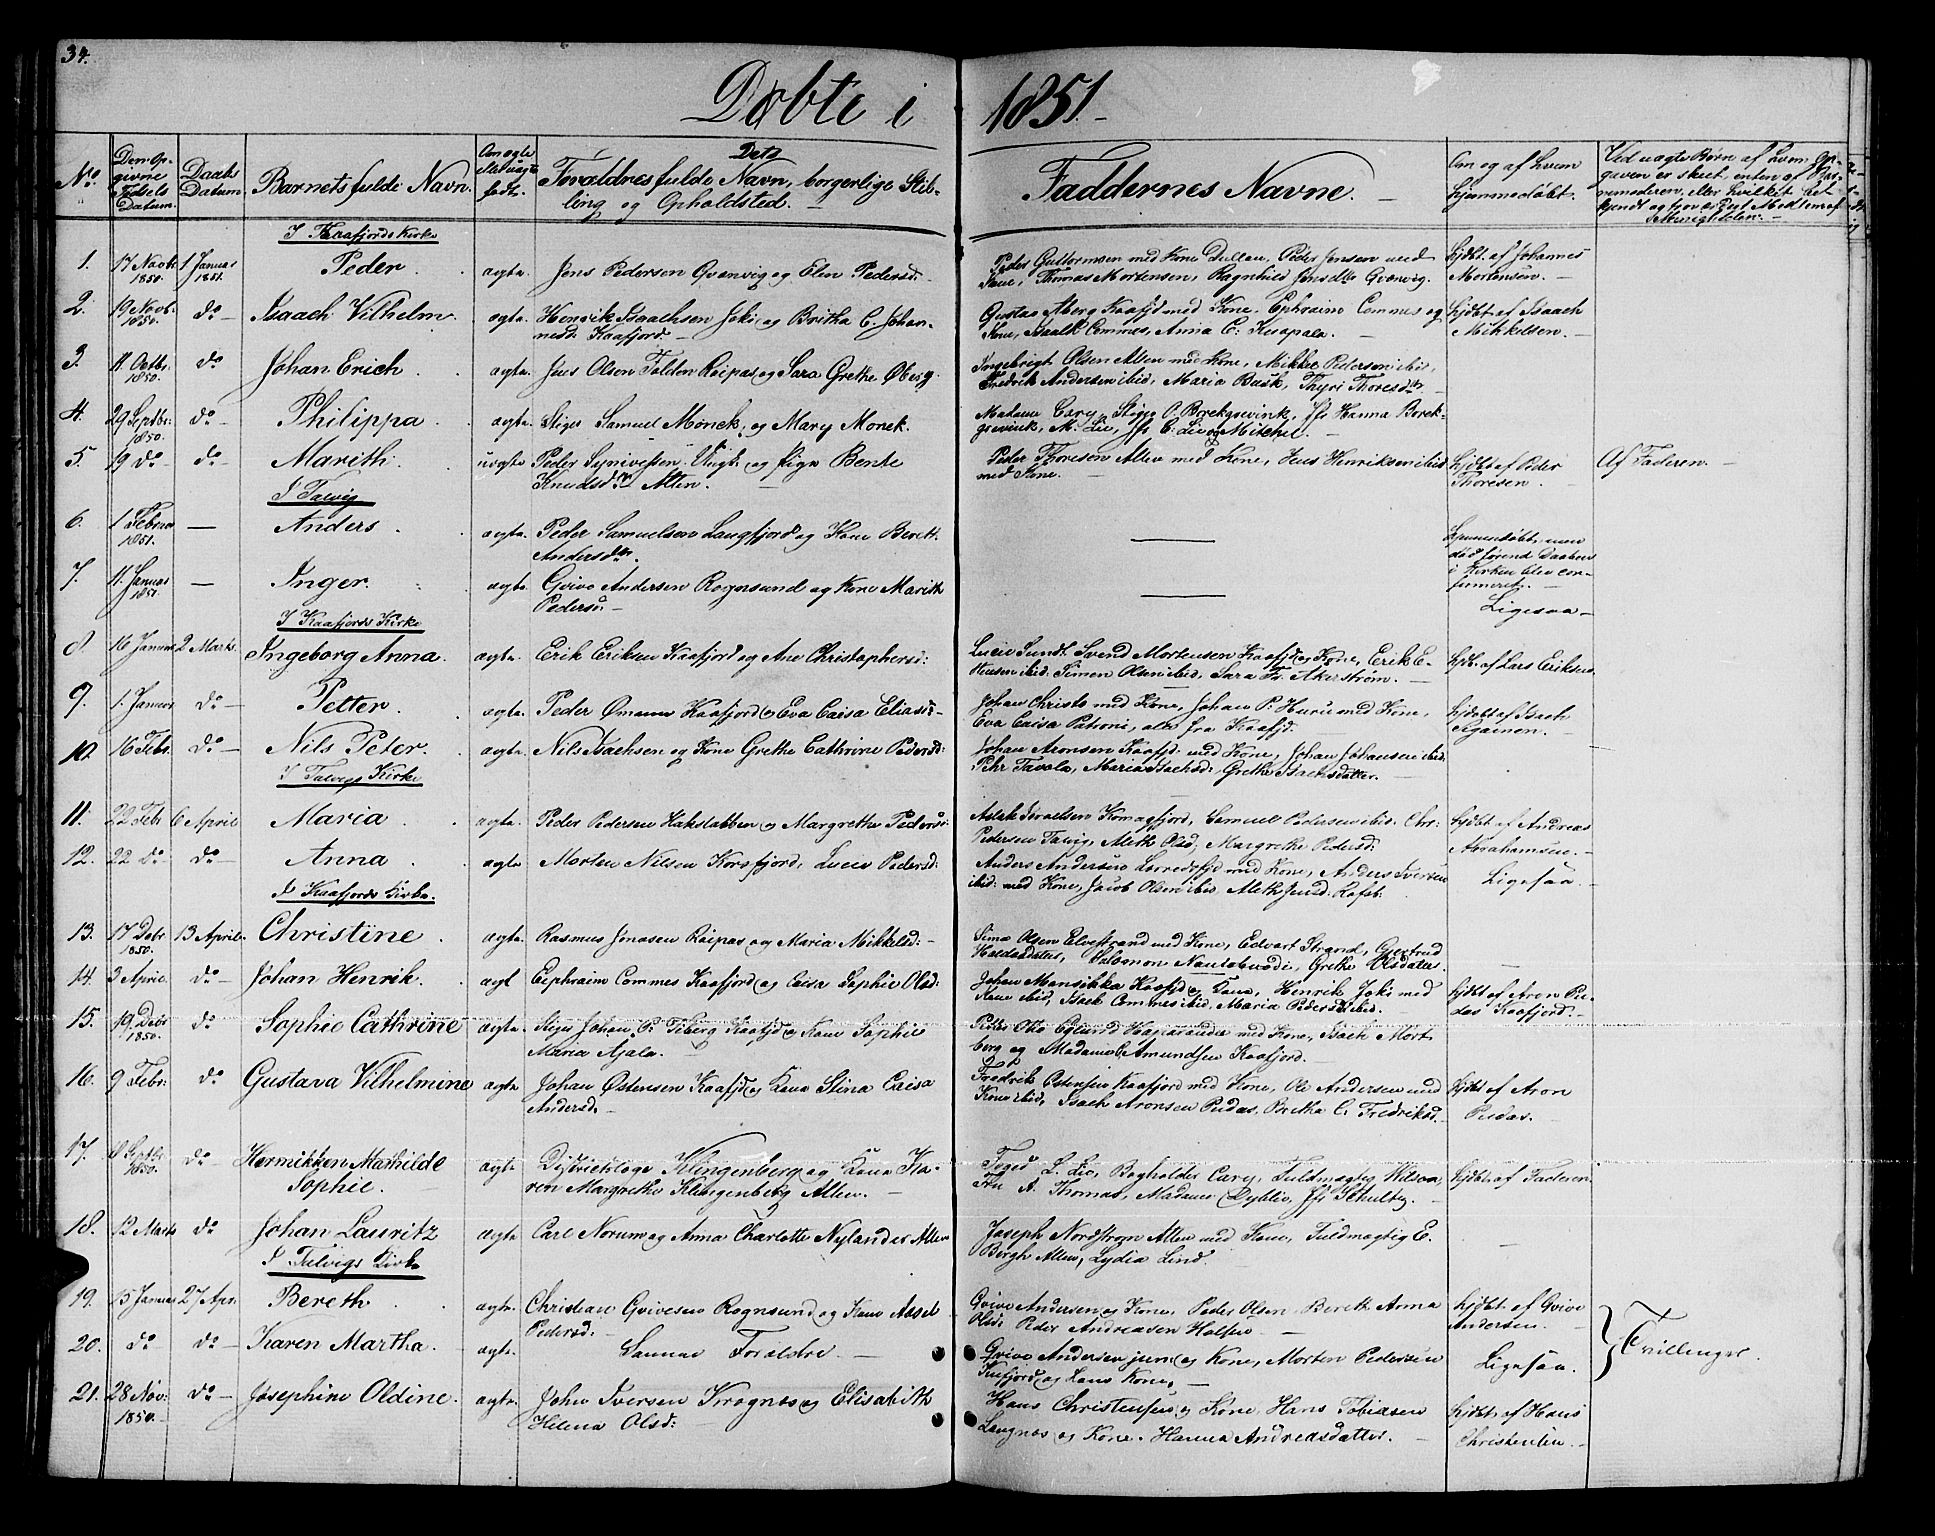 34.
Døbte i 1851.
No. Den opgivne Fødsels Datum. Daabs Datum. Barnets fulde Navn. Om ægte eller uægte født. Forældres fulde Navn, borgerlige Stilling og Opholdsted. Faddernes Navne. Om og af hvem hjemmedøbt.
I Kaafjords Kirke
1. 17 Novbr 1850. 1 Januar 1851. Peder. ægte. Jens Pedersen Qvenvig og Elen Pedersd: Peder Guttormsen med Kone Thomas Mortensen, Ragnhild Jensdtr Qvenvig. hjdbt. af Johannes Mortensen.
2. 19 Novb. 1850. do Isaach Vilhelm. ægte. Henrik Isaachsen Joki og Britha C. Johannesd. Kaafjord. Gustav Åberg Kaafjd med Kone, Ephraim Commes og Kone, Anna C. hjdbt. af Isaach Mikkelsen.
3. 11. Octbr. 1850. do Johan Erich. ægte. Jens Olsen Raipas og Sara Grethe Øberg. Ingebrigt Olsen Alten med Kone, Mikkel Pedersen ibid, Fredrik Andersen ibid, Maria Bask, Thyri Thoresdtr
4. 29 Septbr: 1850. do Philippa. ægte. Stiger Samuel Monck, og Mary Monck. Madame Cary, Stiger P. Borekgrevink, Jfr Hanna Borekgrevink, M. Lie, Jfr C. Lie og Mitchel.
5. 19 do do Marith. uægte Peder Ungk. og Pige Bente Knudsdtr Alten. Peder Thoresen Alten med Kone, Jens Henriksen ibid med Kone. hjdbt af Peder Thoresen. Af Faderen.
I Talvig
6. 1 Februar 1851. — Anders. ægte. Peder Samuelsen Langfjord og Kone Berett Andersdtr. Hjemmedøbt, men død førend Daaben i Kirken blev confirmeret.
7. 11. Januar 1851 — Inger. ægte. Qvive Andersen Rognsund og Kone Marith Pedersd: Ligesaa
I Kaafjords Kirke
8. 16 Januar 2 Marts. Ingeborg Anna. ægte. Erik Eriksen Kaafjord og Ane Christophersd: Lucie Sundt. Svend Mortensen Kaafjd og Kone, Simen Olsen ibid, Sara Fr. Åkerstrøm. hjdb. af Lars Eriksen
9. 1. Januar do Petter. ægte. Peder Kaafjord og Eva Caisa Eliasd: Johan Christo med Kone, Johan P. Huru med Kone, Eva Caisa alle fra Kaafjd. hjdebt af Isach
10. 16 Febr. do Nils Peter. ægte. Nils Isachsen og Kone Grethe Cathrine Pedersd: Johan Aronsen Kaafjd. med Kone, Johan Johansen ibid. Pehr Tavola, Maria Isachsd: Grethe Isachsdatter.
I Talvigs Kirke
11. 22 Febr 6 April Maria. ægte. Peder Pedersen Hakstabben og Margrethe Pedersd: Aslak Komagfjord, Samuel Pedersen ibid. Chr: Pedersen Talvig, Meth Olsd, Margrethe Pedersd: hjdbt. af Andreas Abrahamsen.
12. 22 do do Anna. ægte Morten Nilsen Korsfjord, Lucie Pedersd: Anders Andersen med Kone, Anders Iversen ibid: med Kone, Jacob Olsen ibid, Meth Jensd: Ligesaa.
I Kaafjords Kirke.
13. 17 Debr 1850. 13 April. Christine. ægte. Rasmus Jonasen Raipas og Maria Mikkelsd: Sima Olsen Elvestrand med Kone, Edvart Strand, Gjertrud Salomon Grethe Olsdatter.
14. 3 April. do Johan Henrik. ægt Eephraim Commes Kaafjord og Caisa Sophie Olsd: Johan Kaafjd og Kone, Henrik Joki med Kone ibid, Isach Commes ibid, Maria Pedersdtr ibid. hjdbt af Aron Pudas Kaafjord.
15. 19 Debr 1850. do Sophie Cathrine ægte. Stiger Johan P. Kaafjd og Kone Sophie Maria Ajala. Petter Otto Haparanda med Kone, Isach og Madame Amundsen Kaafjord.
16. 9 Febr: do Gustava Vilhelmine ægte Johan Østensen Kaafjd og Kone Stina Caisa Andersd. Fredrik Ostensen Kaafjord med Kone, Ole Andersen med Kone ibid, Isach Aronsen Pudas, Britha C. Fredriksd. hjdbt af Aron Pudas.
17. 8 Septbr 1850. do Henrikken Mathilde Sophie. ægte Districtslæge Klingenberg og Kone Karen Margrethe Klingenberg Alten. Foged L. Lie, Bogholder Cary, Fuldmægtig Wilson, Fru A. Thomas, Madame Dyblie, Jfr Schultz. hjdbt. af Faderen.
18. 12 Marts do Johan Lauritz ægte Carl Norum og Anna Charlotte Nylander Alten Joseph Nordstrøm Alten med Kone, Fuldmægtig E. Bergh Alten, Lydia Lind.
I Talvigs Kirke
19. 15 Januar 27 Apr. Bereth. ægte. Christian Qvivesen Rognsund og Kone Assel Pedersd: Qvive Andersen og Kone, Peder Olsen. Berett Anna Olsd: Peder Andreasen hjdbt. af Qvive Andersen.
20. do do Karen Martha. ægte. Samme Forældre. Qvive Andersen jun og Kone, Morten Pedersen og Hans Kone. Ligesaa. Tvillinger.
21. 28 Nov: 1850. do Josephine Oldine. ægte. John Iversen Krognæs og Elisabeth Helena Olsd: Hans Christensen og Kone, Hans Tobiasen Langnæs og Kone. Hanna Andreasdatter. hjdbt. af Hans Christensen.